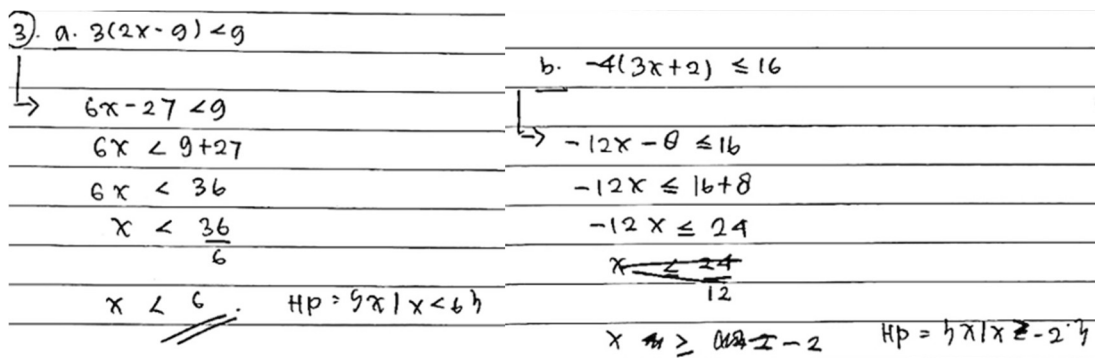 3. a. 3(2x-9) < 9
→ 6x-27 < 9
6x < 9+27
6x < 36
x < 36/6
x < 6. Hp = {x | x < 6}
b. -4(3x+2) ≤ 16
→ -12x - 8 ≤ 16
-12x ≤ 16+8
-12x ≤ 24
x ≤ 24/12
x ≥ -2 Hp = {x | x ≥ -2.}